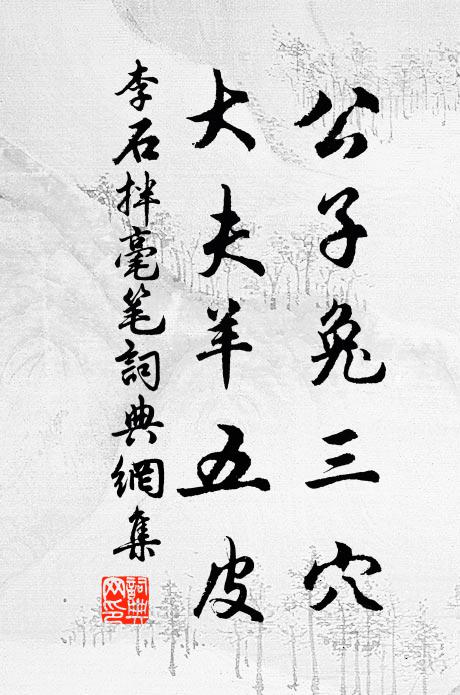 公子兔三穴
大夫羊五皮
李石拌毫笔詞典網集